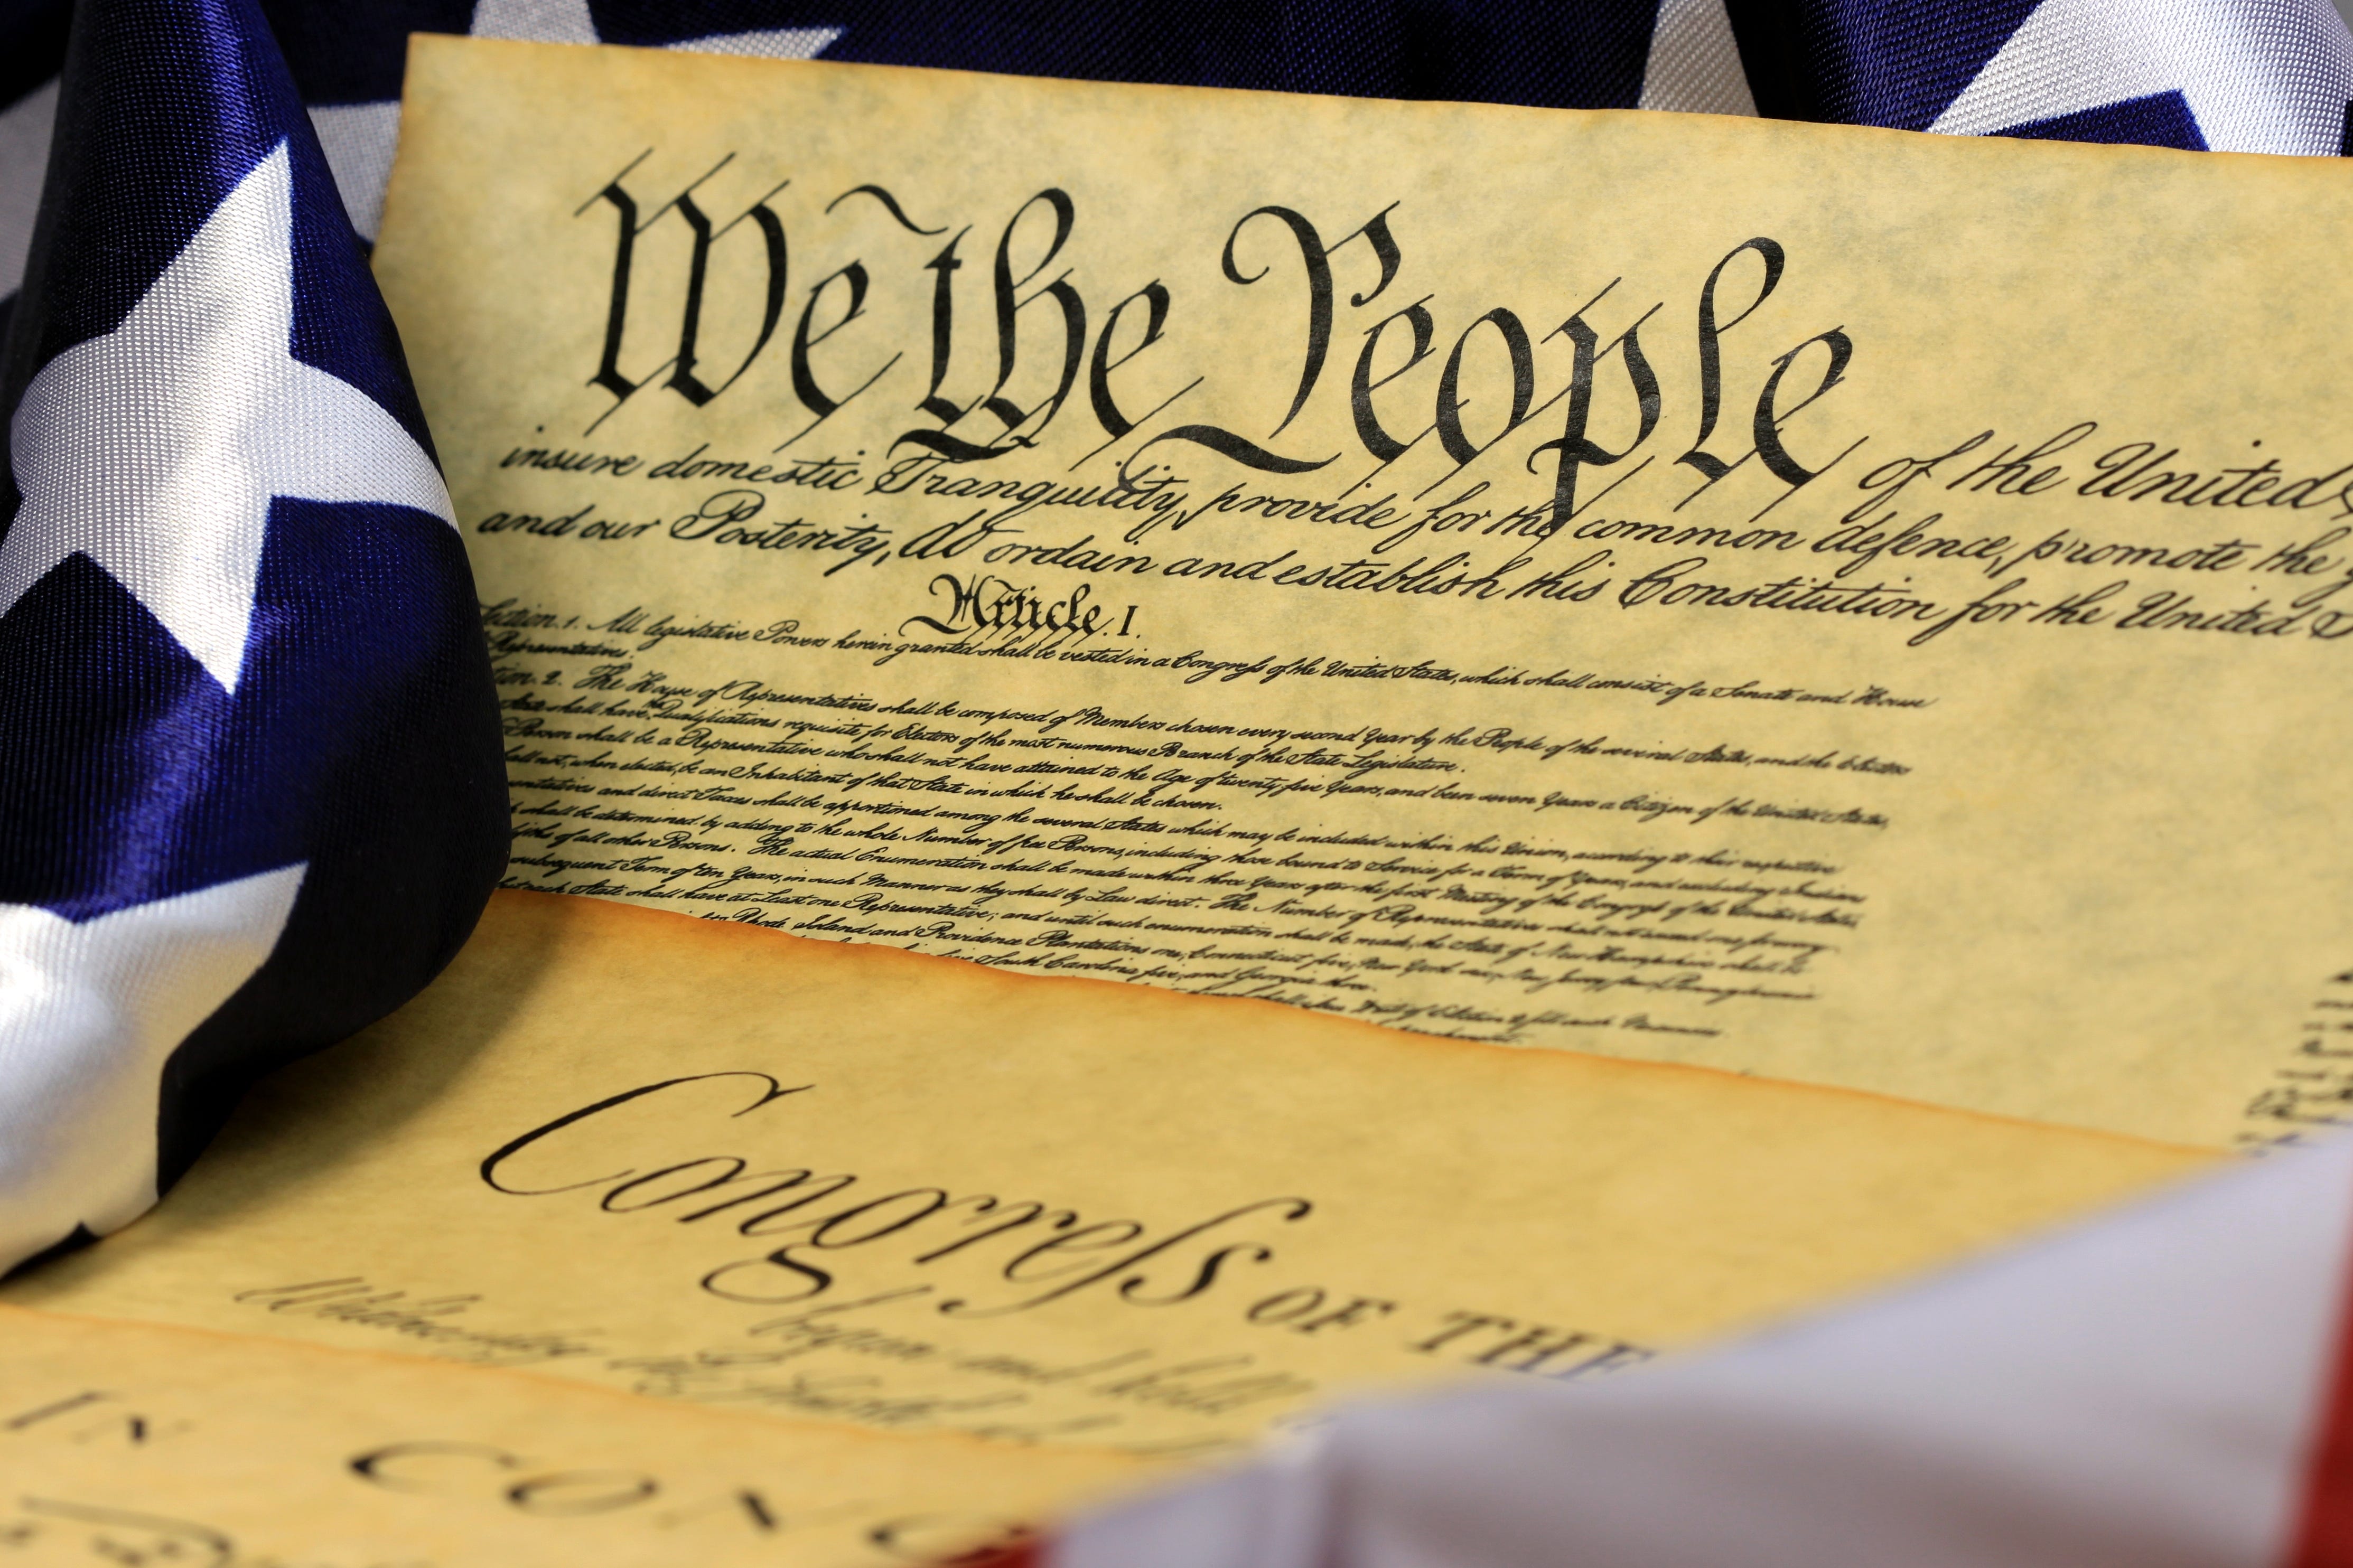 We the People of the United
insure domestic Tranquility, provide for the common defence, promote the
and our Posterity, do ordain and establish this Constitution for the United
Article. I.
Section. 1. All legislative Powers herein granted shall be vested in a Congress of the United States, which shall consist of a Senate and House
Representatives.
tion. 2. The House of Representatives shall be composed of Members chosen every second Year by the People of the several States, and the Electors
State shall have the Qualifications requisite for Electors of the most numerous Branch of the State Legislature.
Person shall be a Representative who shall not have attained to the Age of twenty five Years, and been seven Years a Citizen of the United States,
hall not, when elected, be an Inhabitant of that State in which he shall be chosen.
sentatives and direct Taxes shall be apportioned among the several States which may be included within this Union, according to their respective
shall be determined by adding to the whole Number of free Persons, including those bound to Service for a Term of Years, and excluding Indians
of all other Persons. The actual Enumeration shall be made within three Years after the first Meeting of the Congress of the United States,
subsequent Term of ten Years, in such Manner as they shall by Law direct. The Number of Representatives shall not exceed one for every
but each State shall have at Least one Representative; and until such enumeration shall be made, the State of New Hampshire shall be
Rhode Island and Providence Plantations one, Connecticut five, New York six, New Jersey four, Pennsylvania
five, South Carolina five, and Georgia three.
Writ of Election to fill such Vacancies
Congress OF THE
begun and held
IN CONG